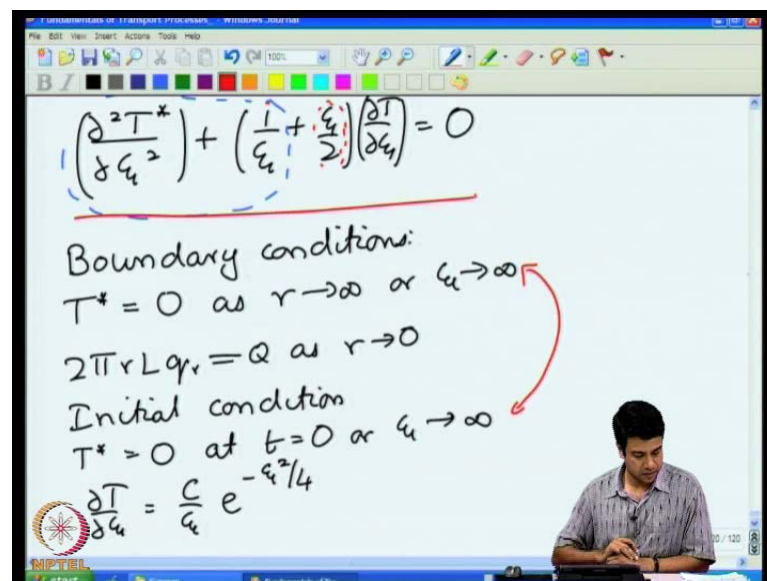 Fundamentals of Transport Processes_ - Windows Journal
File Edit View Insert Actions Tools Help
100%
B I
(∂²T*/∂ξ²) + (1/ξ + ξ/2)(∂T/∂ξ) = 0
Boundary conditions:
T* = 0 as r→∞ or ξ→∞
2πrLqᵣ = Q as r→0
Initial condition
T* = 0 at t=0 or ξ→∞
∂T/∂ξ = C/ξ e^(-ξ²/4)
20 / 120
NPTEL
start